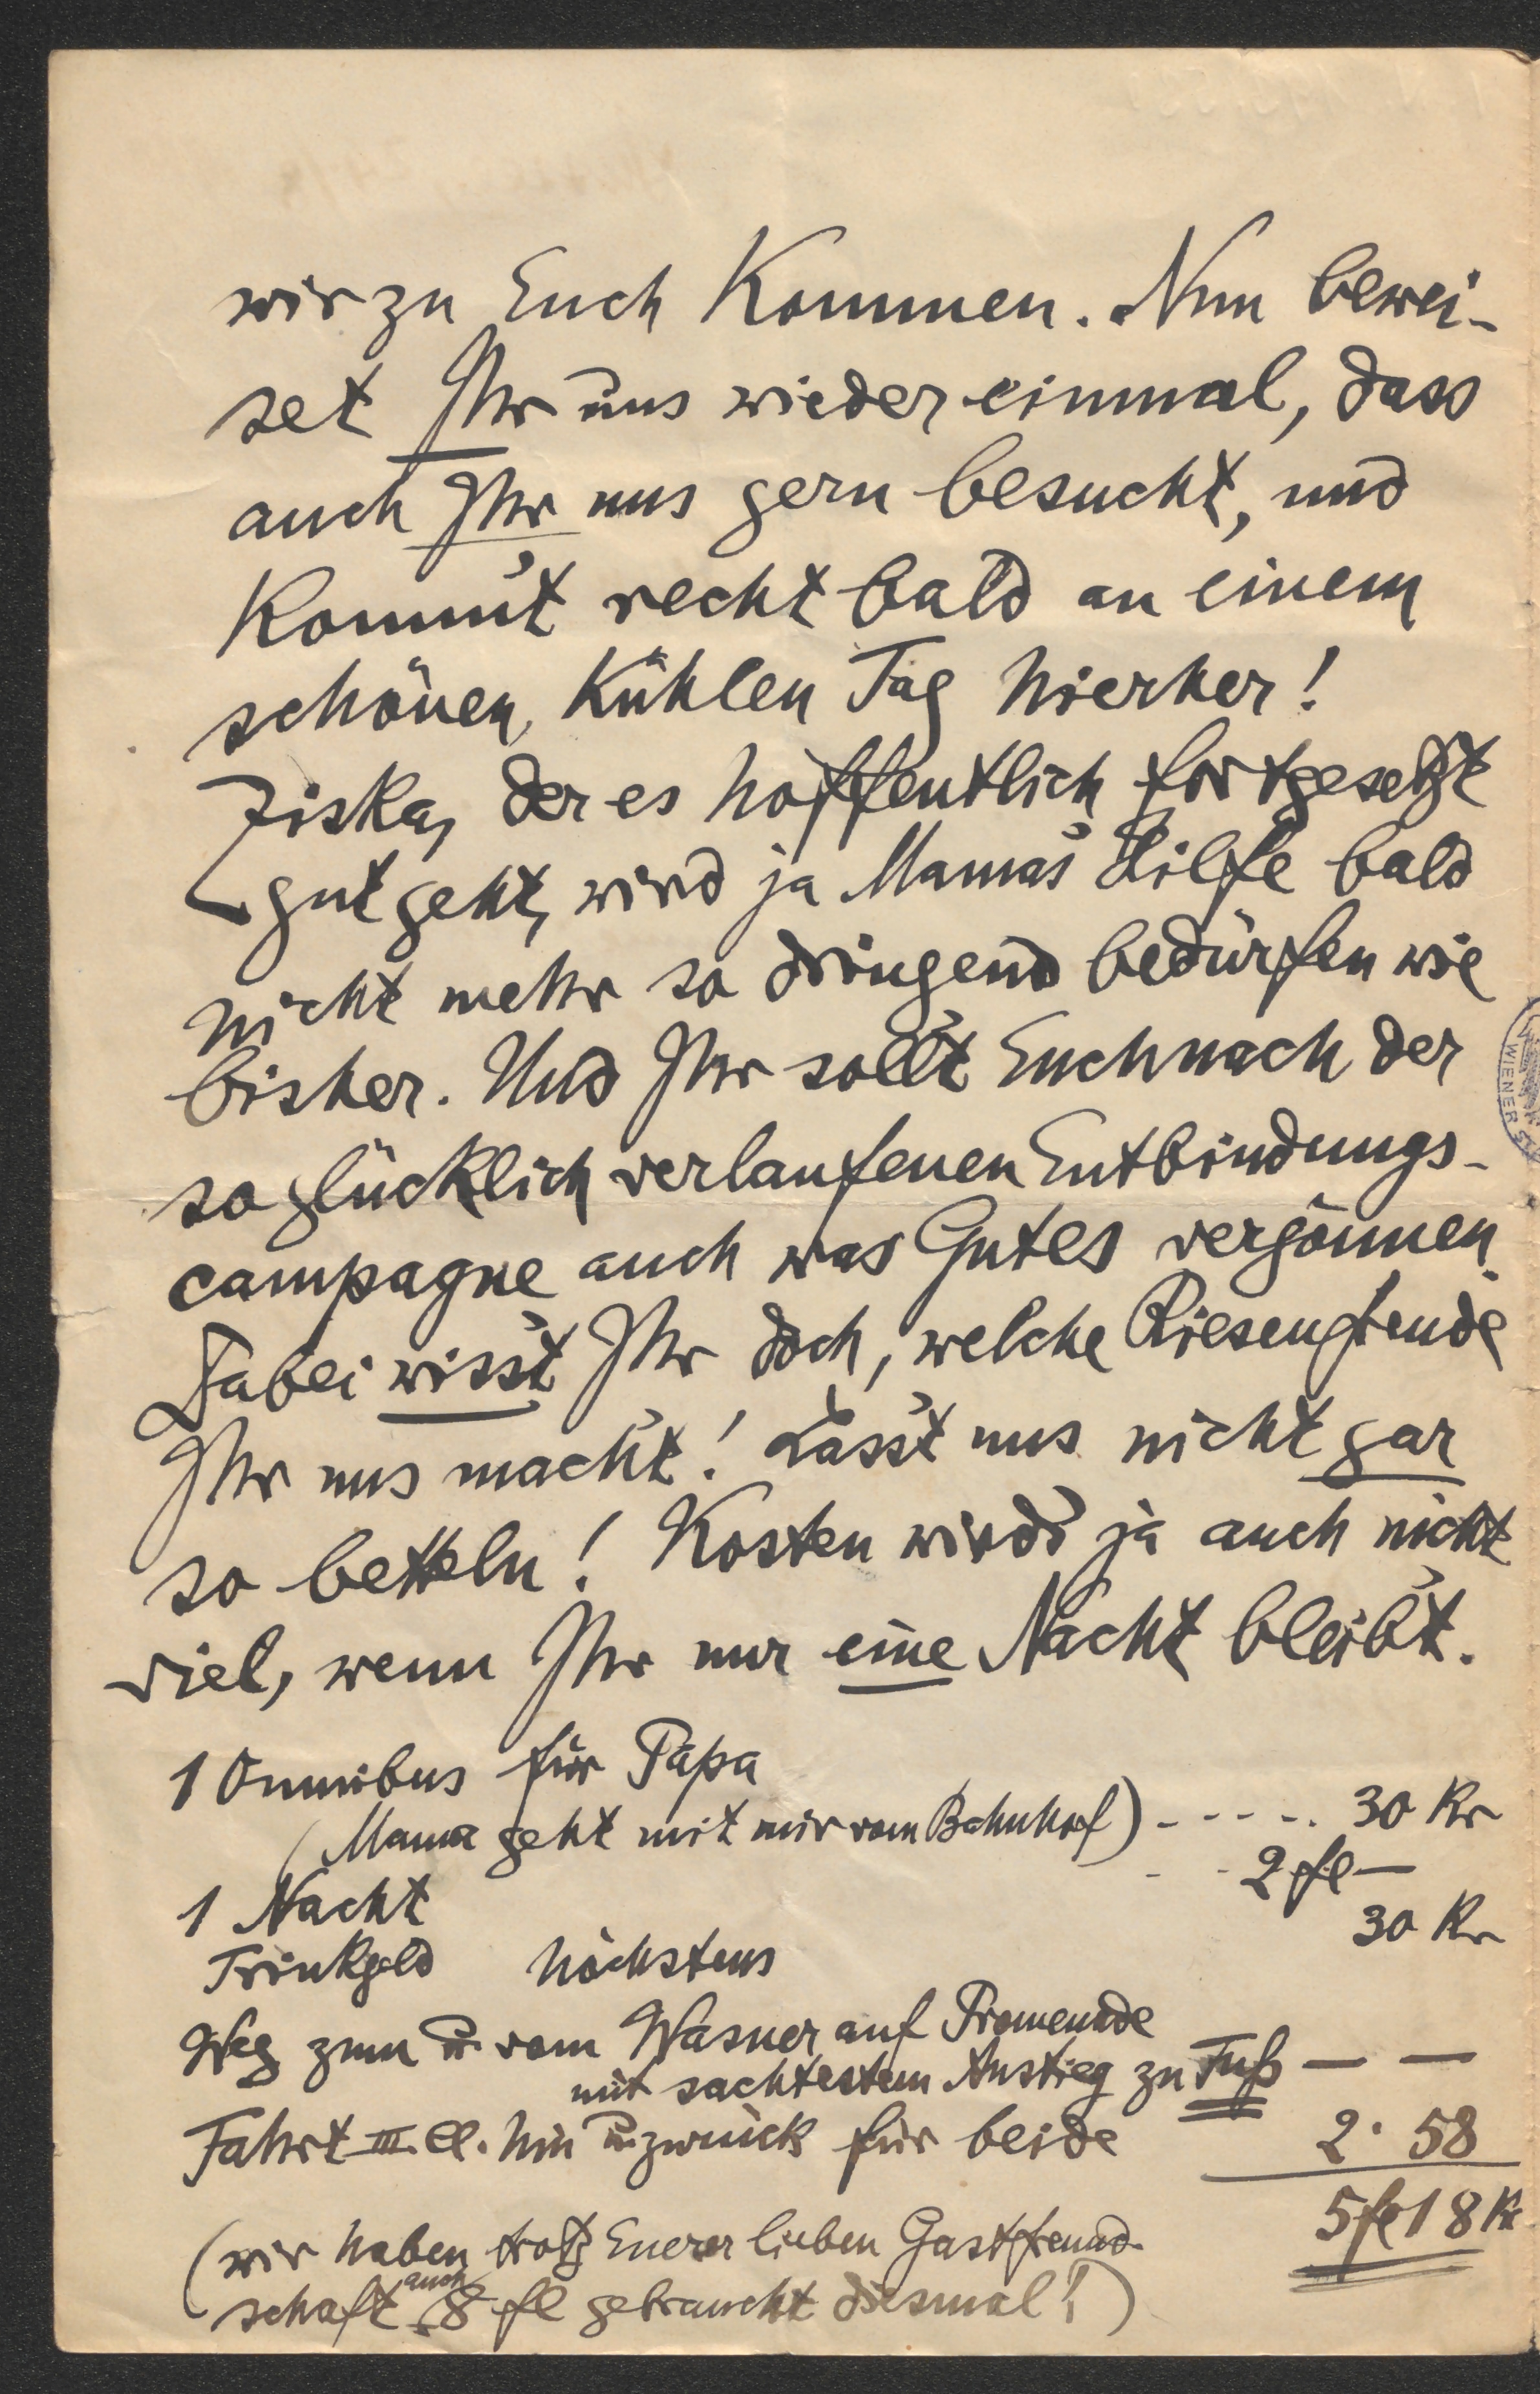 wir zu Euch Kommen. Nun bewei-
set Ihr uns wieder einmal, dass
auch Ihr uns gern besucht, und
Komm't recht bald an einem
schönen, Kühlen Tag hierher!
Ziska, der es hoffentlich fortgesetzt
gut geht, wird ja Mama's Hilfe bald
nicht mehr so dringend bedürfen wie
bisher. Und Ihr soll't Euch nach der
so glücklich verlaufenen Entbindungs-
campagne auch was Gutes vergönnen.
Dabei wiss't Ihr doch, welche Riesenfreude
Ihr uns mach't! Lass't uns nicht gar
so betteln! Kosten wird's ja auch nicht
viel, wenn Ihr nur eine Nacht bleib't.
1 Omnibus für Papa
(Mama geht mit mir vom Bahnhof) ----- 30 Kr
1 Nacht -- 2 fl —
Trinkgeld höchstens 30 Kr
Weg zum u. vom Wasner auf Promenade
mit sachtestem Anstieg zu Fuß — —
Fahrt III. Cl. hin u. zurück für beide 2 · 58
5 fl 18 Kr
(wir haben trotz Euerer lieben Gastfreund-
schaft auch 8 fl gebraucht diesmal!)
WIENER S